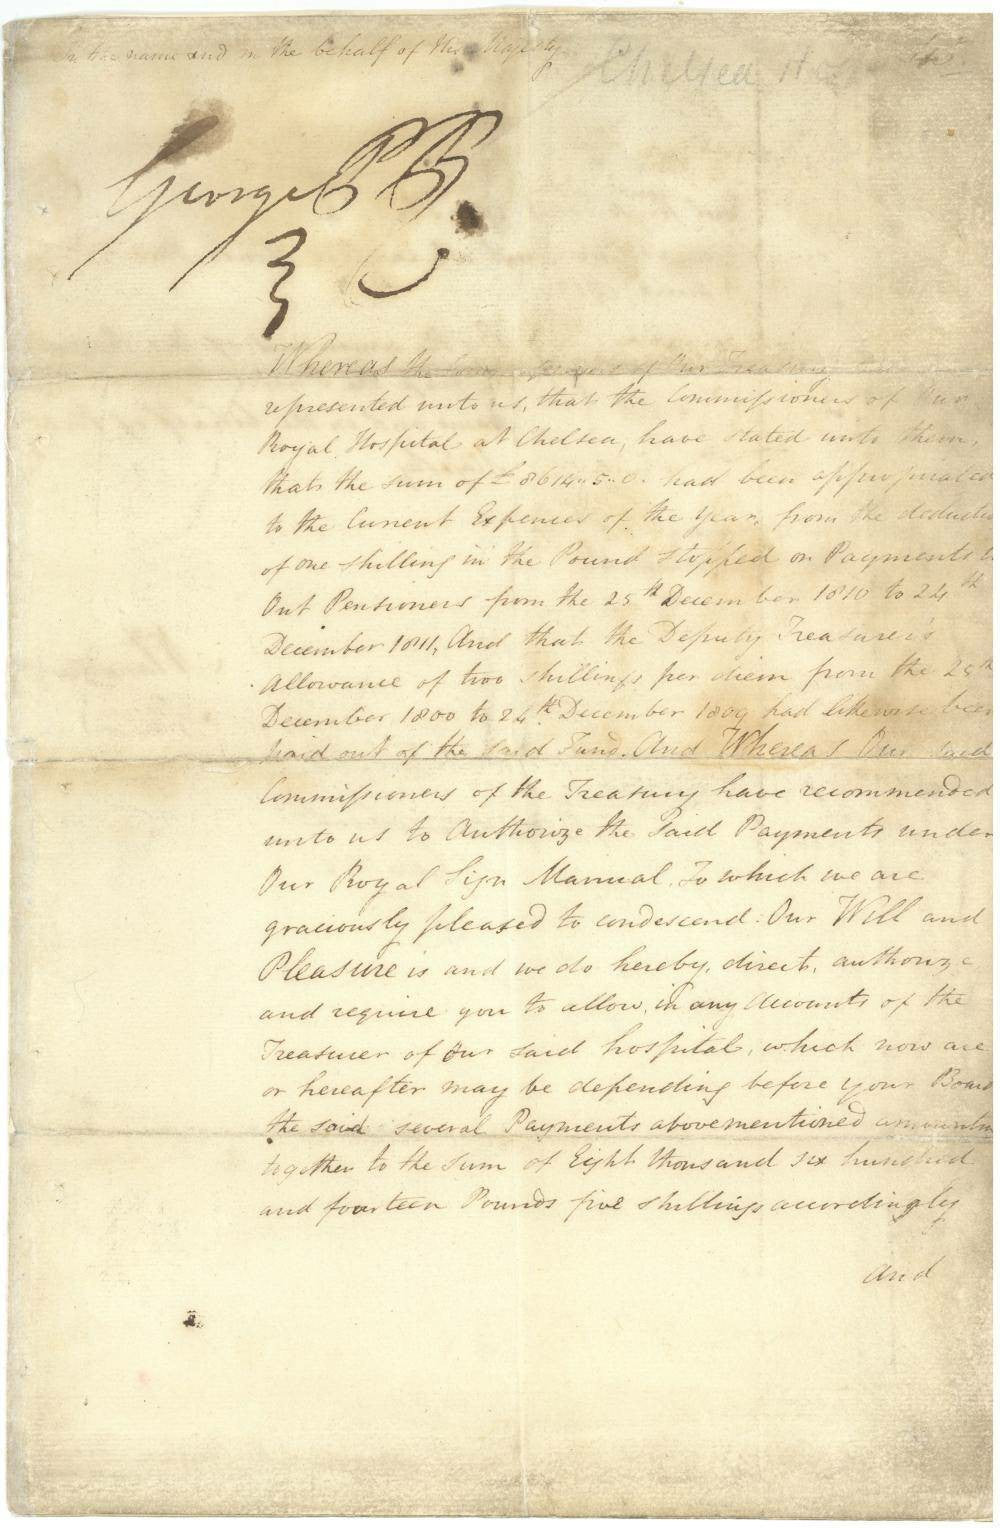 In the name and on the behalf of His Majesty
Chelsea
George P R
Whereas the Commissioners of Our Treasury
represented unto us, that the Commissioners of Our
Royal Hospital at Chelsea, have stated unto them,
that the sum of £8614..5..0. had been appropriated
to the Current Expences of the Year, from the deduction
of one shilling in the Pound stopped on Payments to
Out Pensioners from the 25th December 1810 to 24th
December 1811, And that the Deputy Treasurer's
Allowance of two shillings per diem from the 25th
December 1800 to 24th December 1809 had likewise been
paid out of the said Fund. And Whereas Our said
Commissioners of the Treasury have recommended
unto us to Authorize the said Payments under
Our Royal Sign Manual, To which we are
graciously pleased to condescend: Our Will and
Pleasure is and we do hereby, direct, authorize
and require you to allow, in any Accounts of the
Treasurer of Our said hospital, which now are
or hereafter may be depending before your Board
the said several Payments abovementioned amounting
together to the Sum of Eight thousand six hundred
and fourteen Pounds five shillings accordingly
And